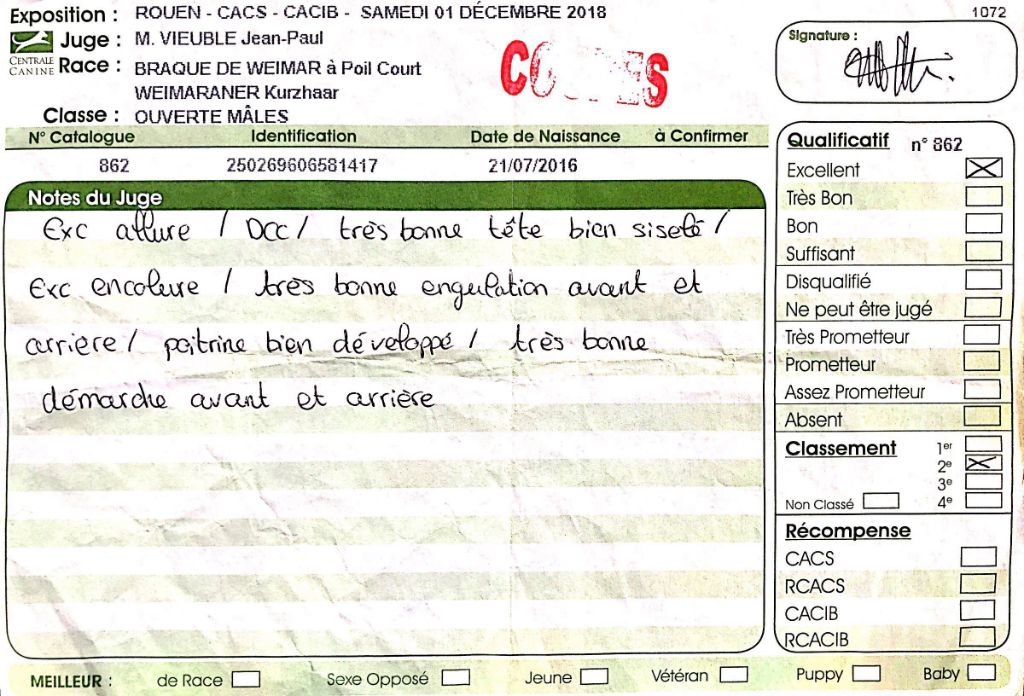 Exposition : ROUEN - CACS - CACIB - SAMEDI 01 DÉCEMBRE 2018
1072
CENTRALE CANINE
Juge : M. VIEUBLE Jean-Paul
Race : BRAQUE DE WEIMAR à Poil Court
WEIMARANER Kurzhaar
Classe : OUVERTE MÂLES
Signature :
N° Catalogue Identification Date de Naissance à Confirmer
862 250269606581417 21/07/2016
Notes du Juge
Exc allure / Dcc / très bonne tête bien siselé /
Exc encolure / très bonne engulation avant et
arrière / poitrine bien développé / très bonne
démarche avant et arrière
Qualificatif n° 862
Excellent
Très Bon
Bon
Suffisant
Disqualifié
Ne peut être jugé
Très Prometteur
Prometteur
Assez Prometteur
Absent
Classement 1er
2e
3e
Non Classé 4e
Récompense
CACS
RCACS
CACIB
RCACIB
MEILLEUR : de Race Sexe Opposé Jeune Vétéran Puppy Baby